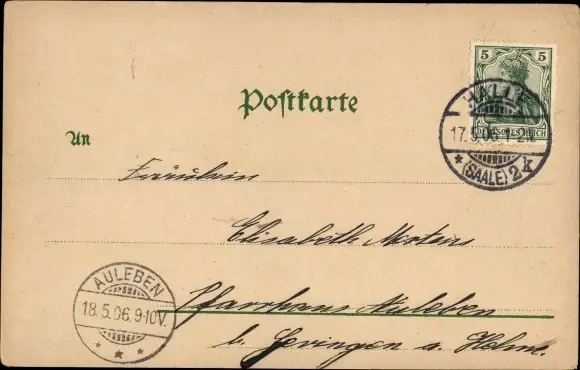 5 5
DEUTSCHES REICH
HALLE
17.5.06.1-2N.
* (SAALE) 2k
Postkarte
An
Fräulein
Elisabeth Mertens
AULEBEN
18.5.06.9-10V.
* * *
Pfarrhaus Auleben
b. a. Helme.